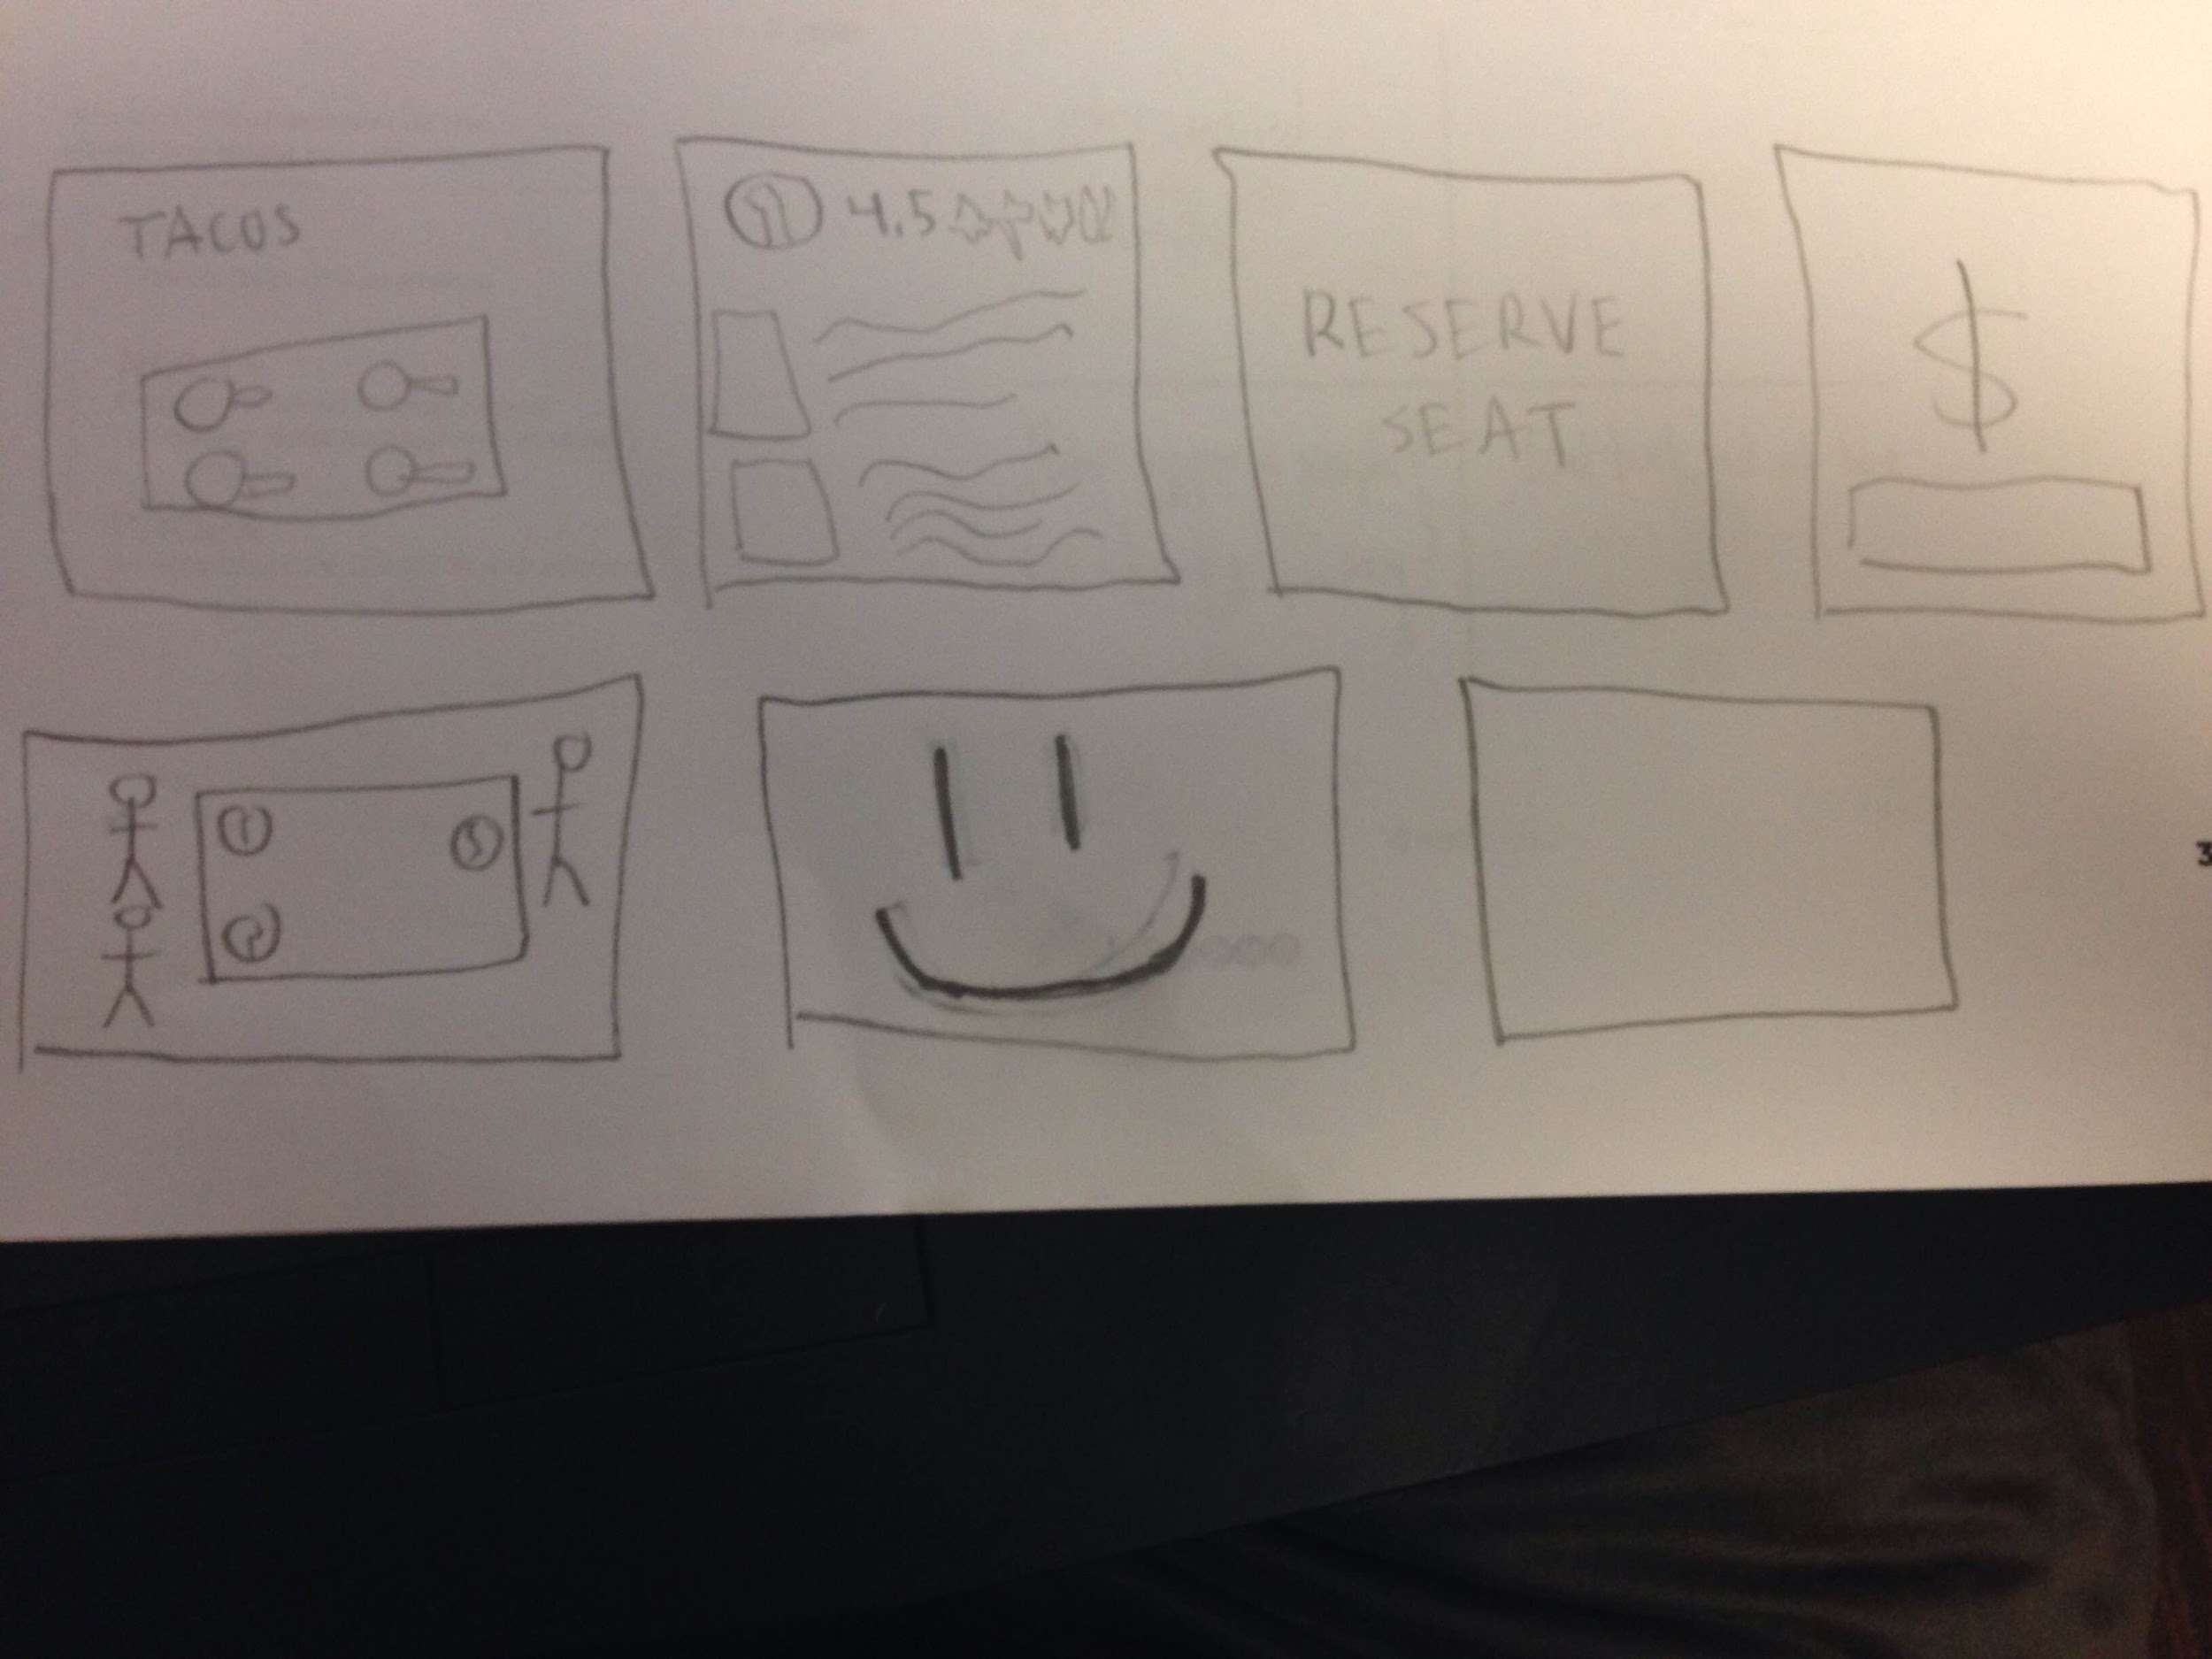 TACOS
4.5
RESERVE
SEAT
$
1
2
3